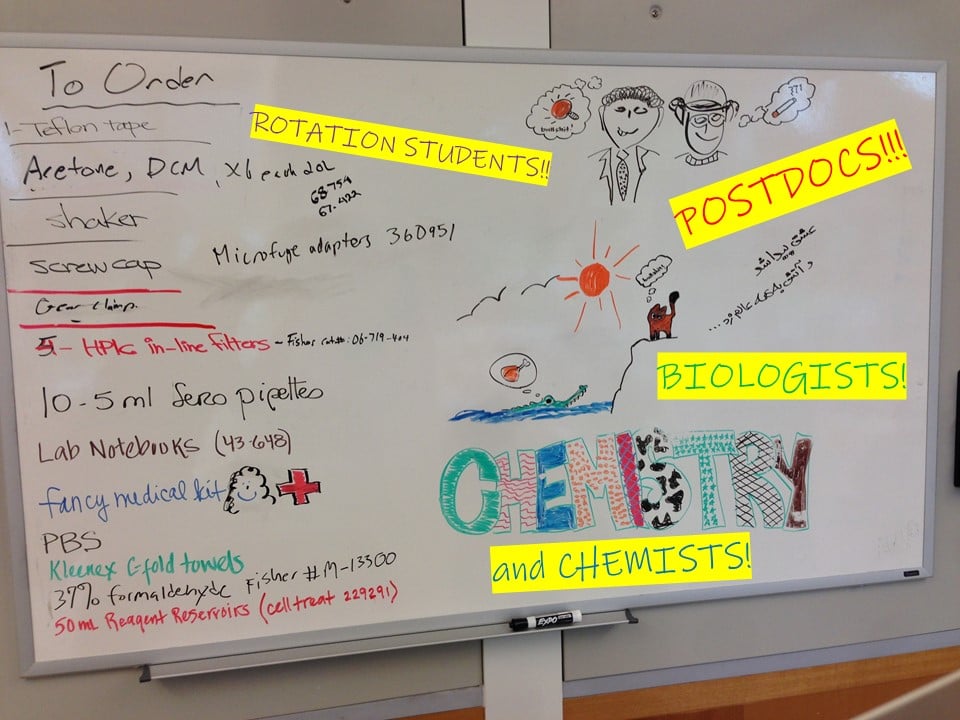 To Order
1- Teflon tape
Acetone, DCM, x6 each 20L
68754
67-422
shaker
Microfuge adapters 360951
screw cap
Gear clamp.
5- HPLC in-line filters - Fisher cat#: 06-719-404
10 - 5 ml Sero pipettes
Lab Notebooks (43-648)
fancy medical kit
PBS
Kleenex C-fold towels
37% formaldehyde Fisher # M-13300
50 mL Reagent Reservoirs (celltreat 229291)
ROTATION STUDENTS!!
bullshit!
???
POSTDOCS!!!
عشق پیدا شد
و آتش به همه عالم زد...
BIOLOGISTS!
CHEMISTRY
and CHEMISTS!
EXPO